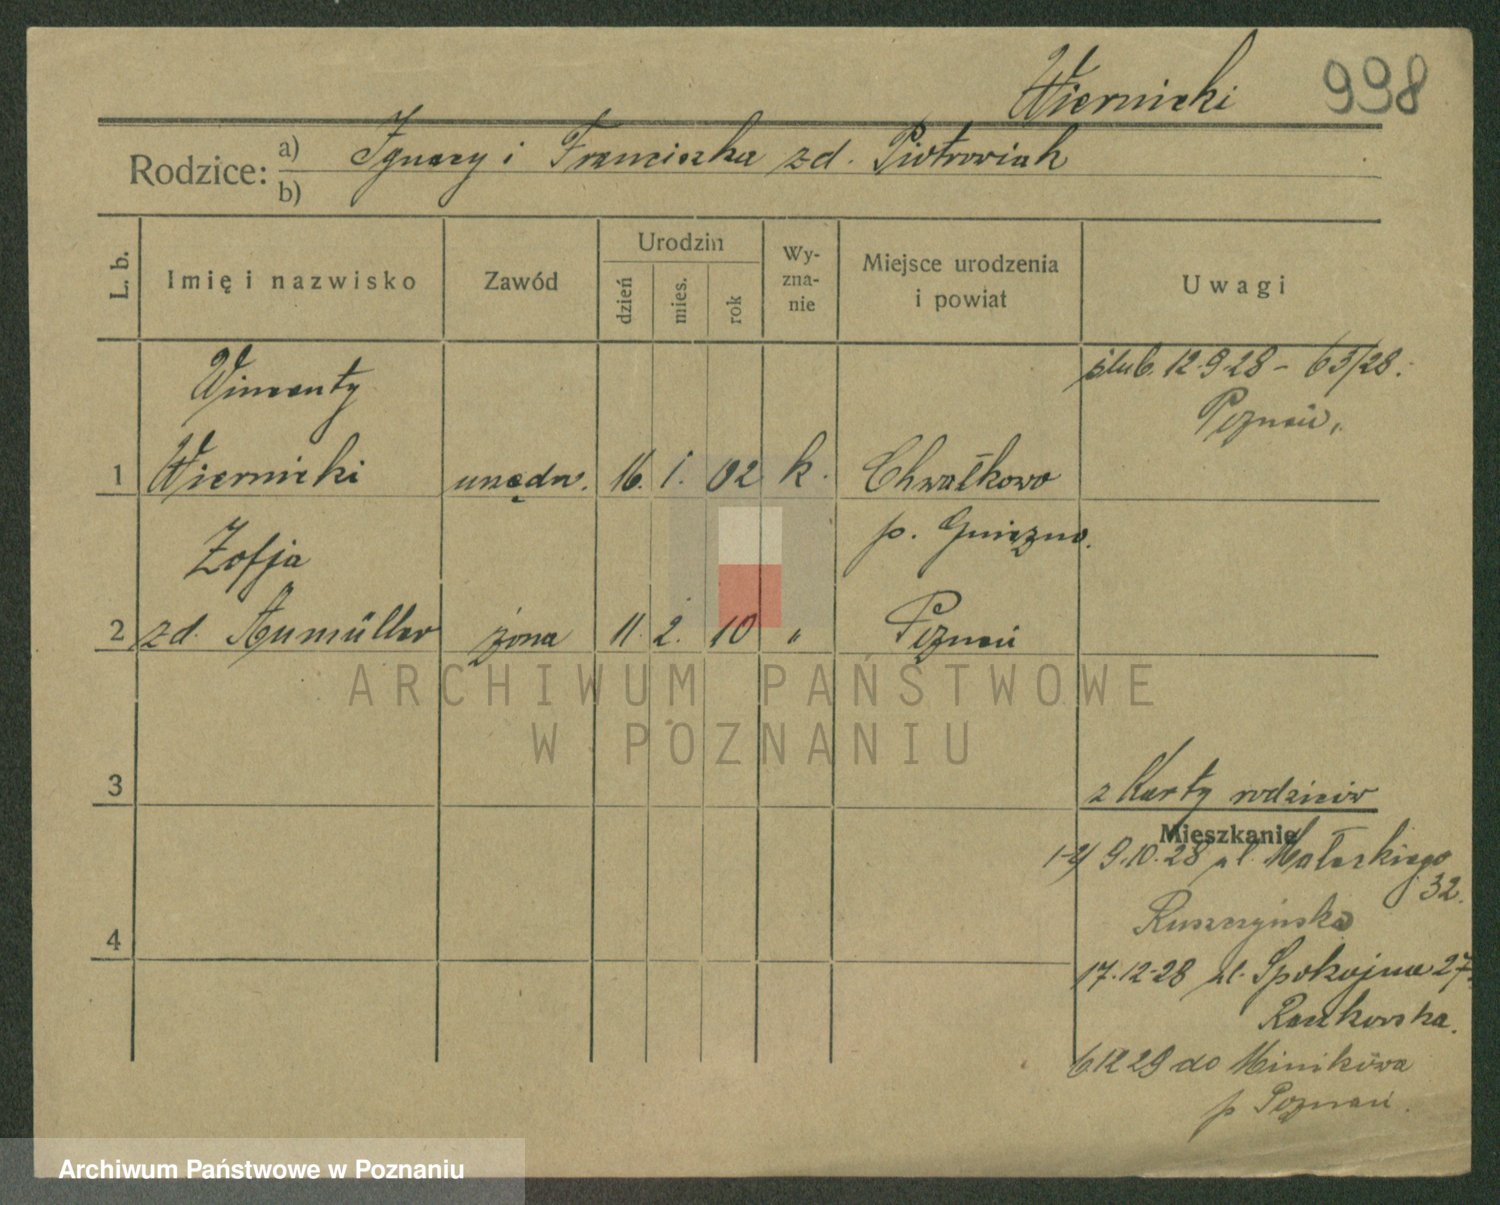 Wiernicki 998
Rodzice: a) Ignacy i Franciszka zd. Piotrowiak
b)
L. b. Imię i nazwisko Zawód Urodzin dzień mies. rok Wy-zna-nie Miejsce urodzenia i powiat Uwagi
ślub. 12.9.28 - 63/28.
Poznań,
Wincenty
1 Wiernicki urzędn. 16. 1. 02 k. Chwałkowo
p. Gniezno.
Zofja
2 zd. Aumüller żona 11. 2. 10 " Poznań
ARCHIWUM PAŃSTWOWE
W POZNANIU
3 z Karty rodziców
Mieszkanie
1-2) 9.10.28 ul. Małeckiego
32.
Ruszczyńska
4
17.12.28 ul. Spokojna 27.
Raczkowska.
6.12.29 do Minikowa
p. Poznań.
Archiwum Państwowe w Poznaniu